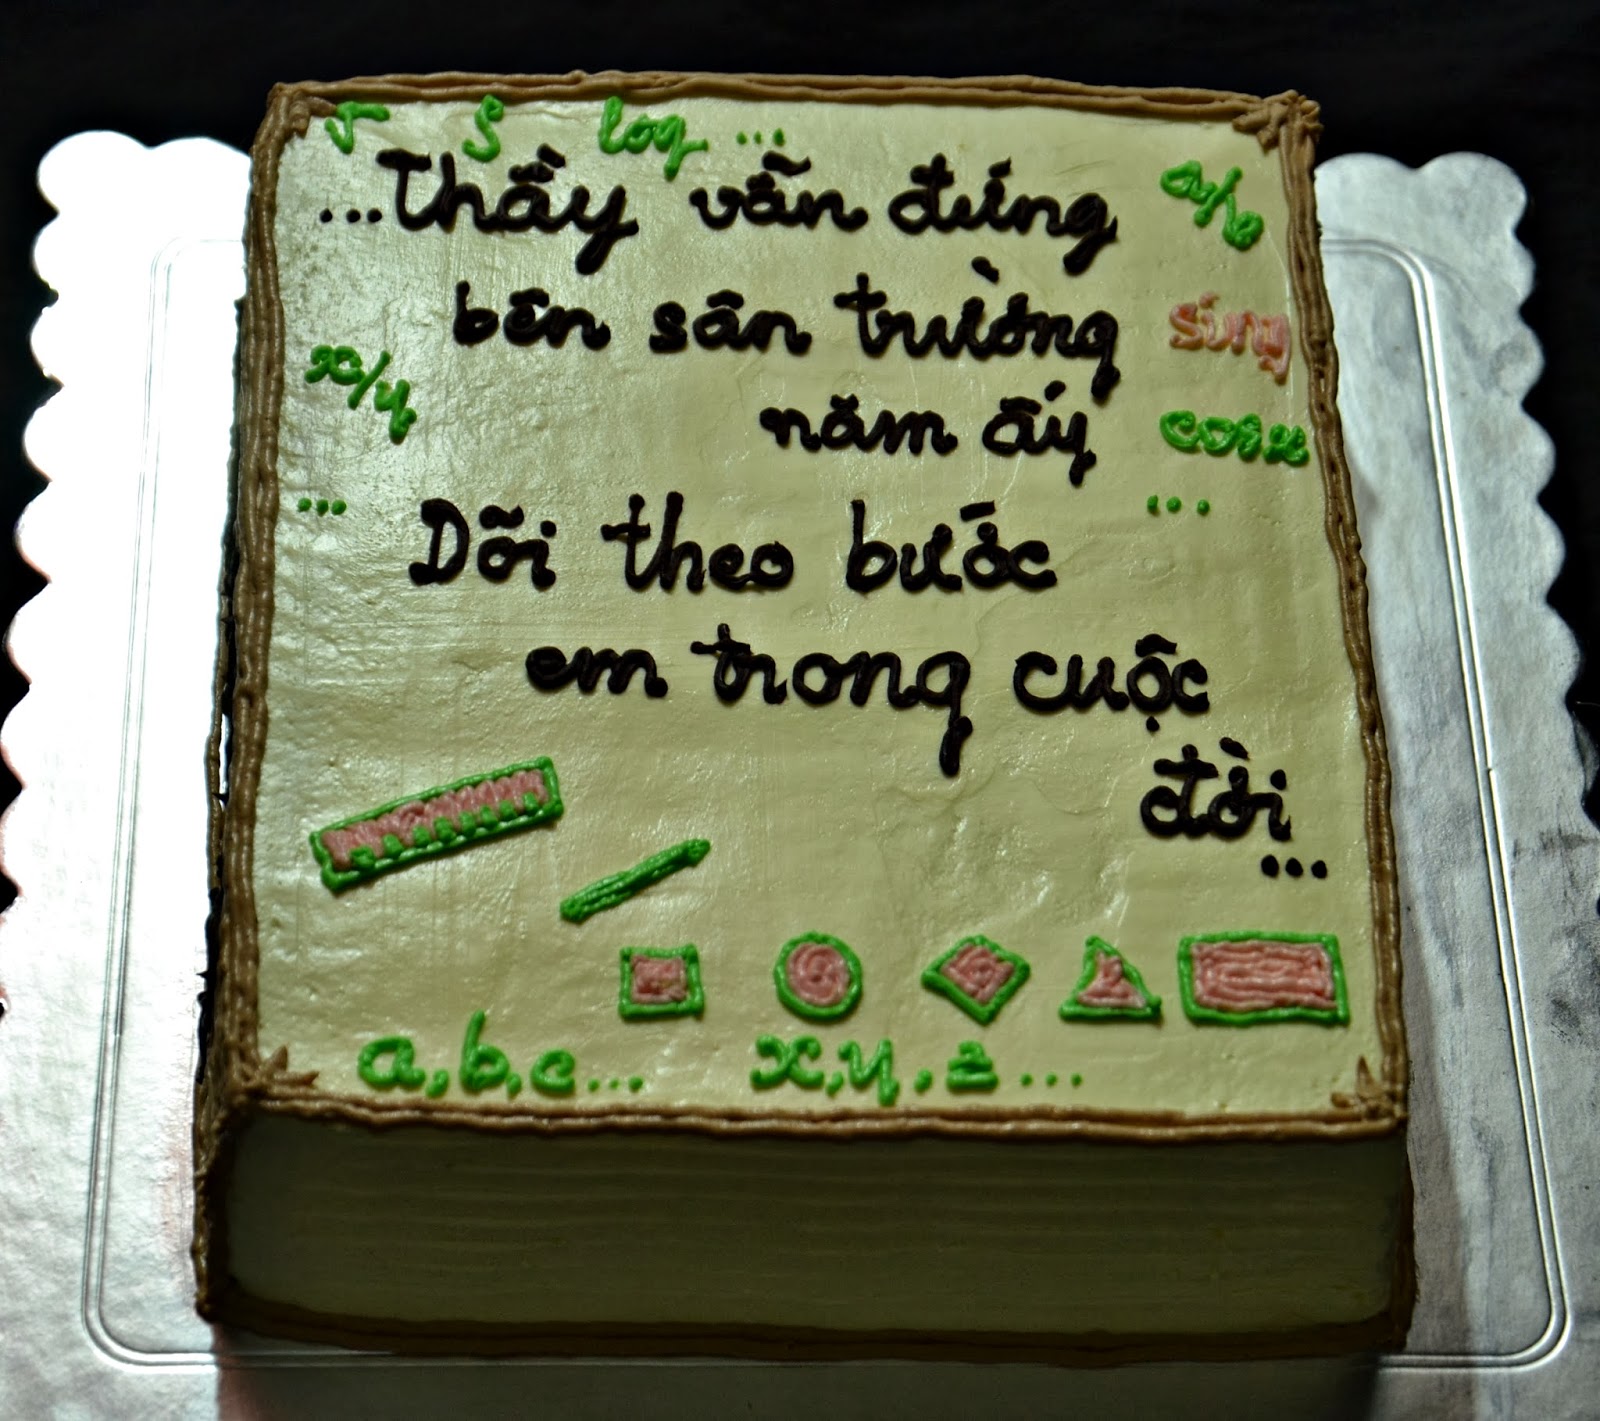 √ ∫ log ...
...Thầy vẫn đứng
a/b
bên sân trường
siny
x/y
năm ấy
cosx
...
...
Dõi theo bước
em trong cuộc
đời
...
a,b,c...
x,y,z...